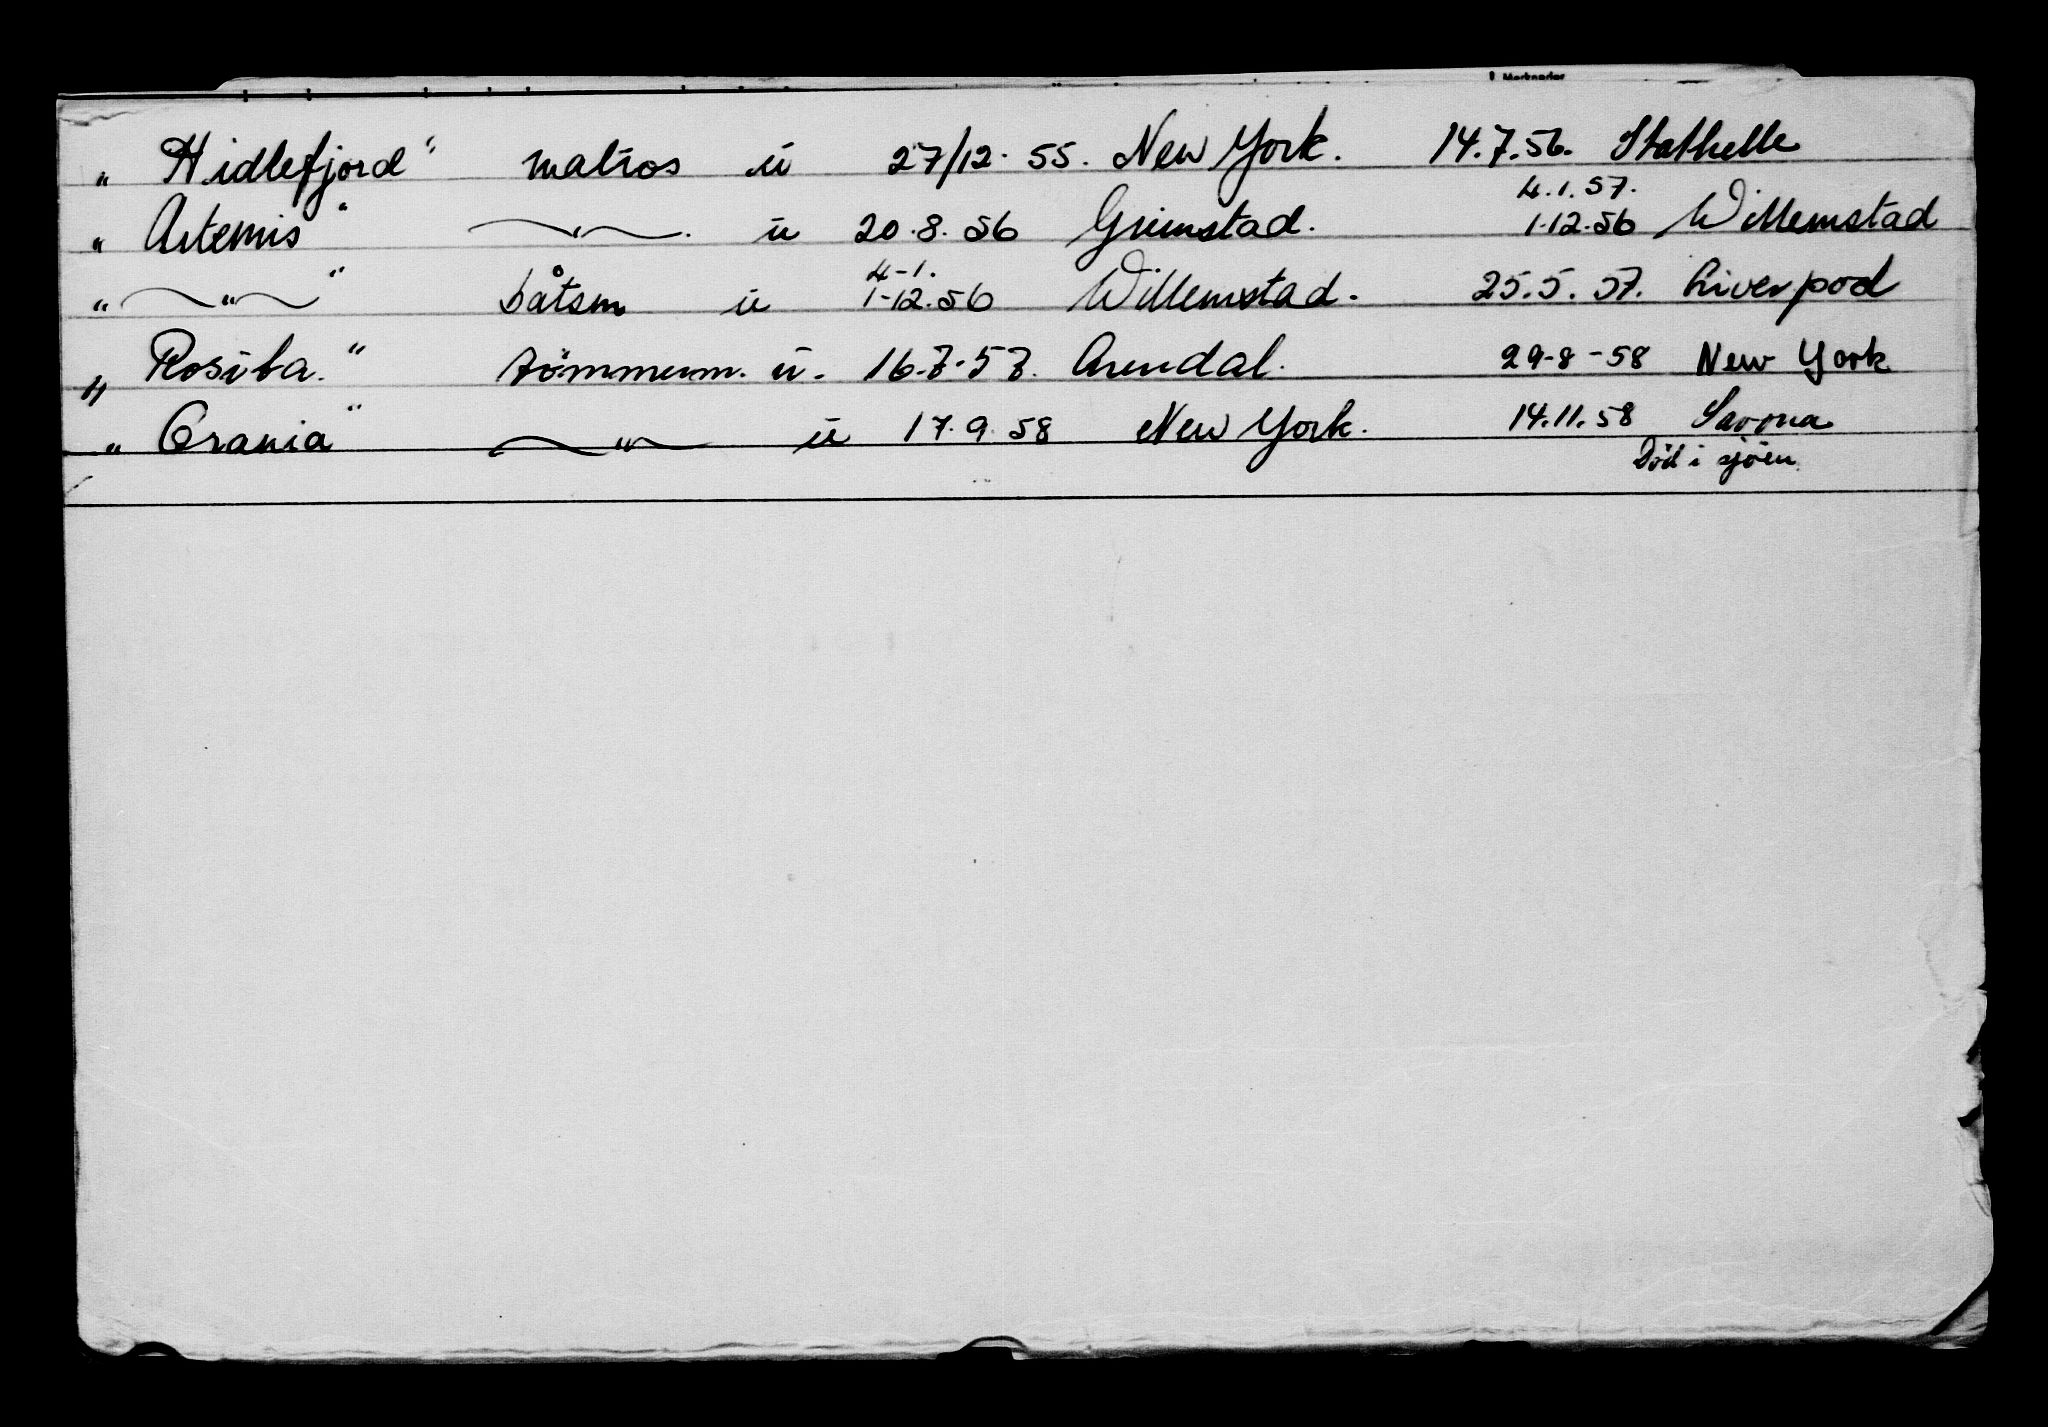 Merknader
„ Hidlefjord" matros u 27/12. 55. New York. 14.7.56. Stathelle
4.1.57.
„ Artemis" —„—. u 20.8.56 Grimstad. 1.12.56 Willemstad
4-1.
„ —„— " båtsm u 1-12.56 Willemstad. 25.5.57. Liverpool
„ Rosita." tömmerm. u. 16.7.57. Arendal. 29-8-58 New York
„ Crania" —„— u 17.9.58 New York. 14.11.58 Savona
Död i sjöen